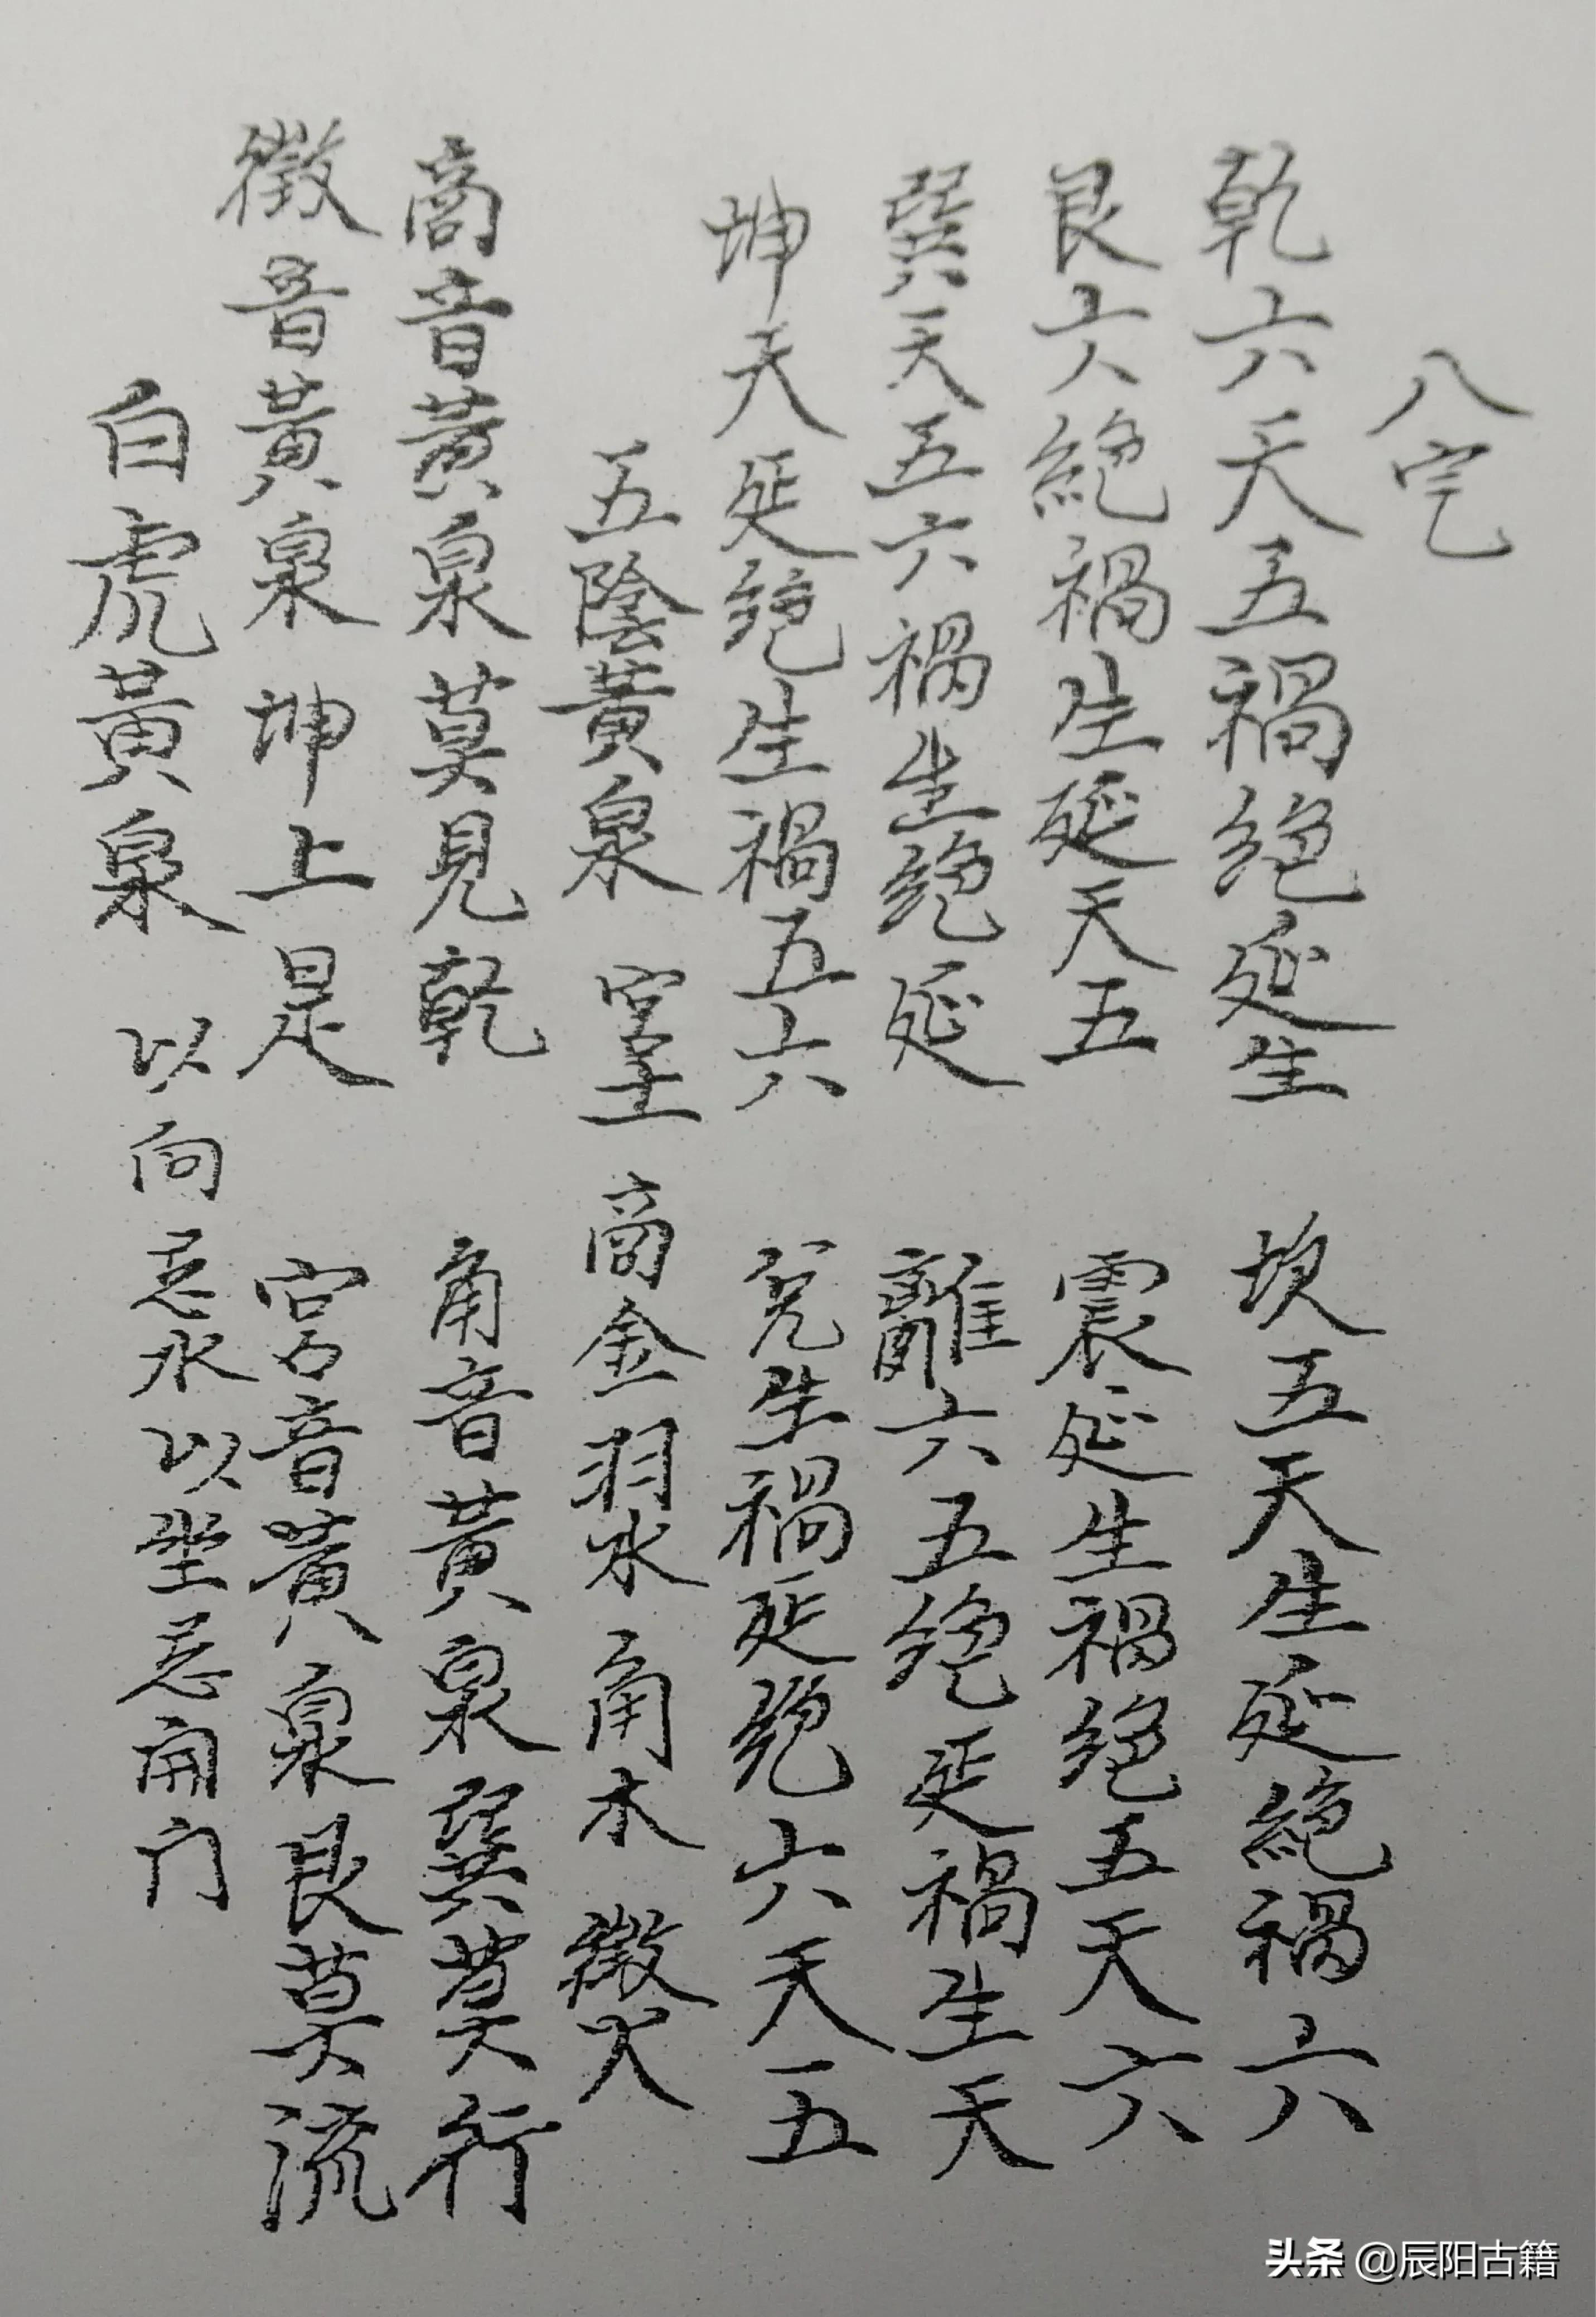 八宅
乾六天五禍絕延生　坎五天生延絕禍六
艮六絕禍生延天五　震延生禍絕五天六
巽天五六禍生絕延　離六五絕延禍生天
坤天延絕生禍五六　兌生禍延絕六天五
五陰黃泉　宮土　商金　羽水　角木　徵火
商音黃泉莫見乾　角音黃泉巽莫行
徵音黃泉坤上是　宮音黃泉艮莫流
白虎黃泉　以向忌水以坐忌開门
头条 @辰阳古籍